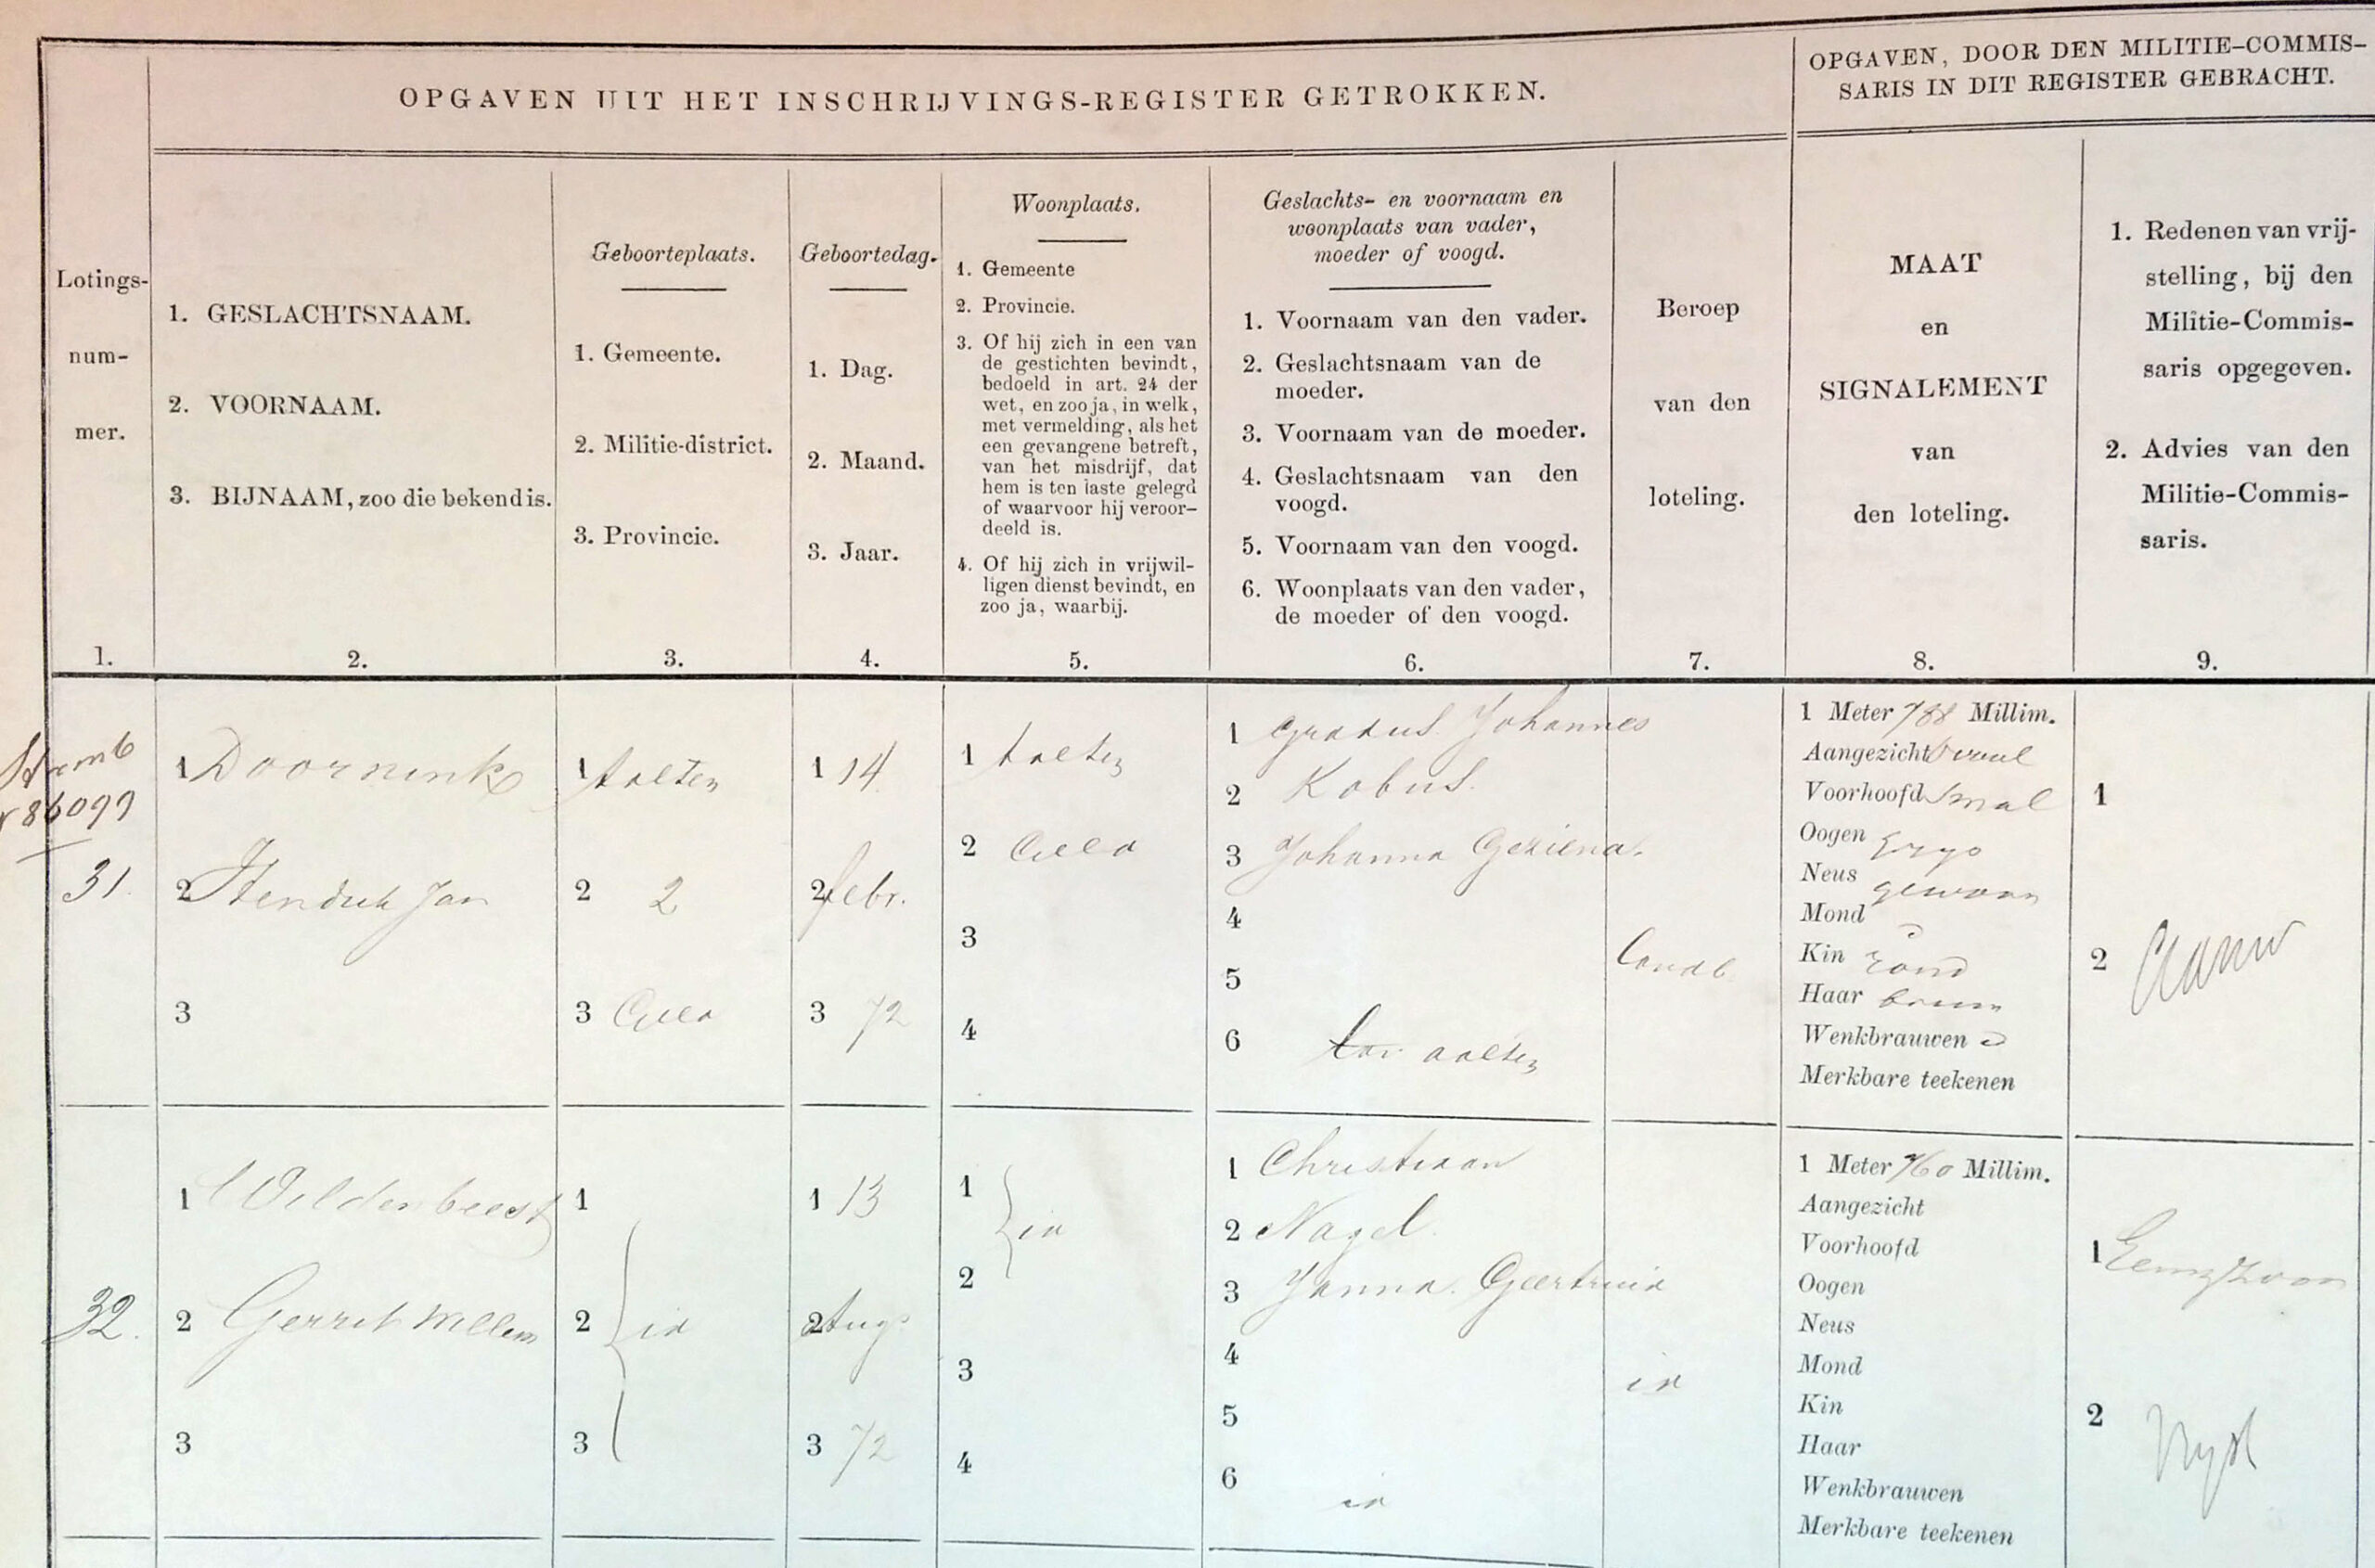 OPGAVEN UIT HET INSCHRIJVINGS-REGISTER GETROKKEN.
OPGAVEN, DOOR DEN MILITIE-COMMIS-
SARIS IN DIT REGISTER GEBRACHT.
Lotings-
num-
mer.
1.
1. GESLACHTSNAAM.
2. VOORNAAM.
3. BIJNAAM, zoo die bekend is.
2.
Geboorteplaats.
1. Gemeente.
2. Militie-district.
3. Provincie.
3.
Geboortedag.
1. Dag.
2. Maand.
3. Jaar.
4.
Woonplaats.
1. Gemeente
2. Provincie.
3. Of hij zich in een van
de gestichten bevindt,
bedoeld in art. 24 der
wet, en zoo ja, in welk,
met vermelding, als het
een gevangene betreft,
van het misdrijf, dat
hem is ten laste gelegd
of waarvoor hij veroor-
deeld is.
4. Of hij zich in vrijwil-
ligen dienst bevindt, en
zoo ja, waarbij.
5.
Geslachts- en voornaam en
woonplaats van vader,
moeder of voogd.
1. Voornaam van den vader.
2. Geslachtsnaam van de
moeder.
3. Voornaam van de moeder.
4. Geslachtsnaam van den
voogd.
5. Voornaam van den voogd.
6. Woonplaats van den vader,
de moeder of den voogd.
6.
Beroep
van den
loteling.
7.
MAAT
en
SIGNALEMENT
van
den loteling.
8.
1. Redenen van vrij-
stelling, bij den
Militie-Commis-
saris opgegeven.
2. Advies van den
Militie-Commis-
saris.
9.
Stamb
86099
31.
1 Doornink
2 Hendrik Jan
3
1 Aalten
2 2
3 Geld
1 14
2 febr.
3 72
1 Aalten
2 Geld
3
4
1 Gradus Johannes
2 Kobus.
3 Johanna Geziena.
4
5
6 Aalten
Landb
1 Meter 788 Millim.
Aangezicht ovaal
Voorhoofd smal
Oogen grys
Neus gewoon
Mond
Kin rond
Haar bruin
Wenkbrauwen
Merkbare teekenen
1
2
32.
1 Wildenbeest
2 Gerrit Willem
3
1
2 id
3
1 13
2 Aug.
3 72
1
id
2
3
4
1 Christiaan
2 Nagel.
3 Janna Geertruid
4
5
6 id
id
1 Meter 760 Millim.
Aangezicht
Voorhoofd
Oogen
Neus
Mond
Kin
Haar
Wenkbrauwen
Merkbare teekenen
1 Eenigzoon
2 Vryst